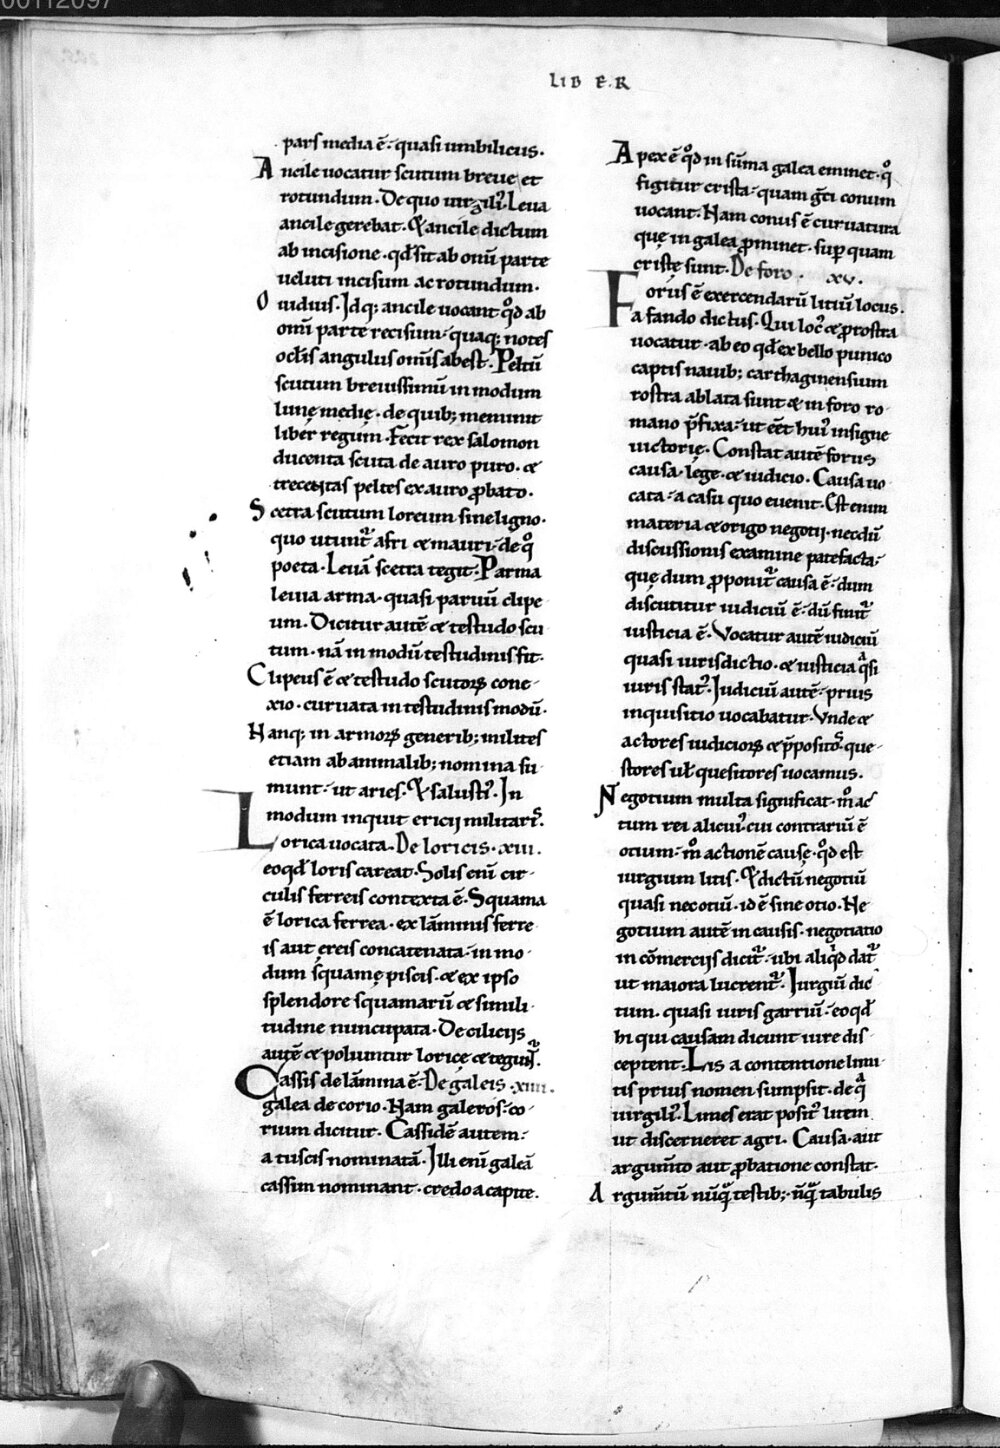 00112097
LIBER
pars media ē· quasi umbilicus.
Ancile uocatur scutum breue et
rotundum. De quo uirgiliꝰ. Leua
ancile gerebat. & ancile dictum
ab incisione. qđ sit ab omī parte
ueluti incisum ac rotundum.
Ouidius. Idq; ancile uocant qđ ab
omī parte recisum· quaq; notes
oclis angulus omīs abest. Peltū
scutum breuissimū in modum
lunę medię. de quib; meminit
liber regum. Fecit rex salomon
ducenta scuta de auro puro. &
trecentas peltes ex auro ꝓbato.
Scetra scutum loreum sine ligno.
quo utunt̄ afri & mauri· de q̊
poeta. Leuā scetra tegit. Parma
leuia arma. quasi paruū clipe
um. Dicitur autē & testudo scu
tum. nā in modū testudinis fit.
Clipeus ē & testudo scutoꝝ cone-
xio. curuata in testudinis modū.
Hanq; in armoꝝ generib; milites
etiam ab animalib; nomina su
munt· ut aries. & salustiꝰ. In
modum inquit ericij militarꝭ.
Lorica uocata. De loricis. xiii.
eo qđ loris careat. Solis enī cir-
culis ferreis contexta ē. Squama
ē lorica ferrea. ex lāminis ferre
is aut ereis concatenata· in mo-
dum squamę piscis. & ex ipso
splendore squamarū & simili-
tudine nuncupata. De ciliciis
autē & poliuntur loricę & tegunt̄.
Cassis de lāmina ē. De galeis. xiiii.
galea de corio. Nam galeros· co-
rium dicitur. Cassidē autem:
a tuscis nominatā. Illi enī galeā
cassim nominant. credo a capite.
Apex ē qđ in sūma galea eminet. q̊
figitur crista· quam gr̄ci conum
uocant. Nam conus ē curuatura
quę in galea ꝓminet. suꝑ quam
cristę sunt. De foro. xv.
Forus ē exercendarū litiū locus.
a fando dictus. Qui locꝰ & prostra
uocatur. ab eo qđ ex bello punico
captis nauib; carthaginensium
rostra ablata sunt & in foro ro-
mano p̄fixa· ut eēt huiꝰ insigne
uictorię. Constat autē forus
causa. lege. & iudicio. Causa uo
cata· a casu quo euenit. Est enim
materia & origo negotii. necdū
discussionis examine patefacta·
quę dum ꝓponit̄ causa ē· dum
discutitur iudiciū ē· dū finit̄
iusticia ē. Vocatur autē iudiciū
quasi iuris dictio. & iusticia q̄si
iuris statꝰ. Iudiciū autē· prius
inquisitio uocabatur. Vnde &
actores iudicioꝝ & p̄positos. que-
stores ul̵ quesitores uocamus.
Negotium multa significat. m̊ ac
tum rei alicuiꝰ cui contrariū ē
otium· m̊ actionē causę. qđ est
iurgium litis. & dictū negotiū
quasi nec otiū. id ē sine otio. Ne
gotium autē in causis. negotiatio
in cōmerciis dicit̄· ubi aliqđ dat̄
ut maiora lucrent̄. Iurgiū dic
tum. quasi iuris garriū· eo qđ
hi qui causam dicunt iure dis-
ceptent. Lis a contentione limi
tis prius nomen sumpsit. de q̄
uirgiliꝰ. Limes erat positꝰ litem
ut discerneret agri. Causa. aut
argum̄to aut ꝓbatione constat.
Argum̄tū nūq̄ testib;· nūq̄ tabulis